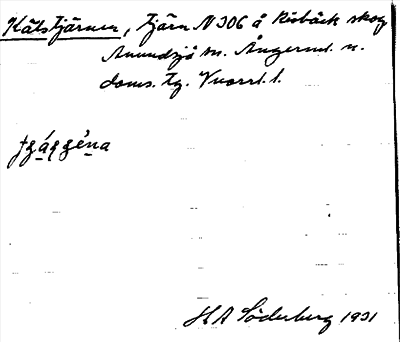 Kälstjärnen, tjärn N 306 å Risbäck skog
Anundsjö sn. Ångerml. n.
doms. tg. Vuorrl. l.
tgággéna
H A Söderberg 1931